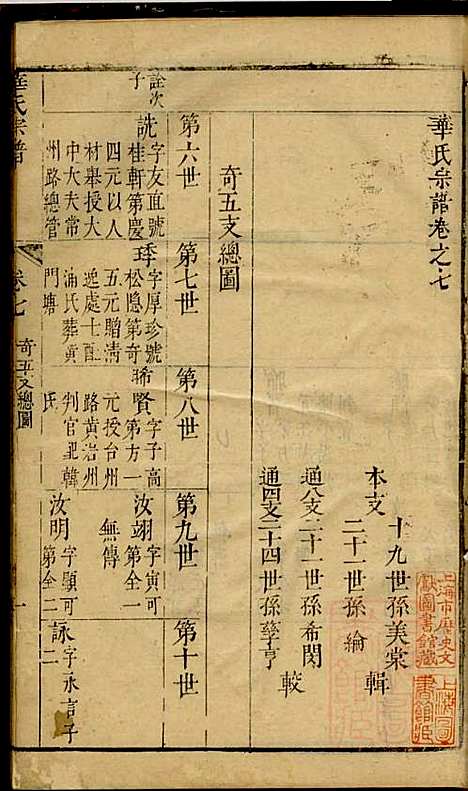 華氏宗譜卷之七
本支
十九世孫美棠
二十一世孫綸
輯
通八支二十一世孫希閔
通四支二十四世孫孳亨
較
奇五支總圖
第六世
第七世
第八世
第九世
第十世
詮次
子
詵
字友直號
桂軒第慶
四元以人
材舉授大
中大夫常
州路總管
字厚珍號
松隱第奇
五元贈清
逸處士配
浦氏葬黃
門塘
晞賢
字子高
第方一
元授台州
路黃岩州
判官配韓
氏
汝翊
字寅可
第全一
無傳
汝明
字顯可
第全二
詠
字永言子
二
華氏宗譜
卷七
奇五支總圖
一
上海市歷史文
獻圖書館藏